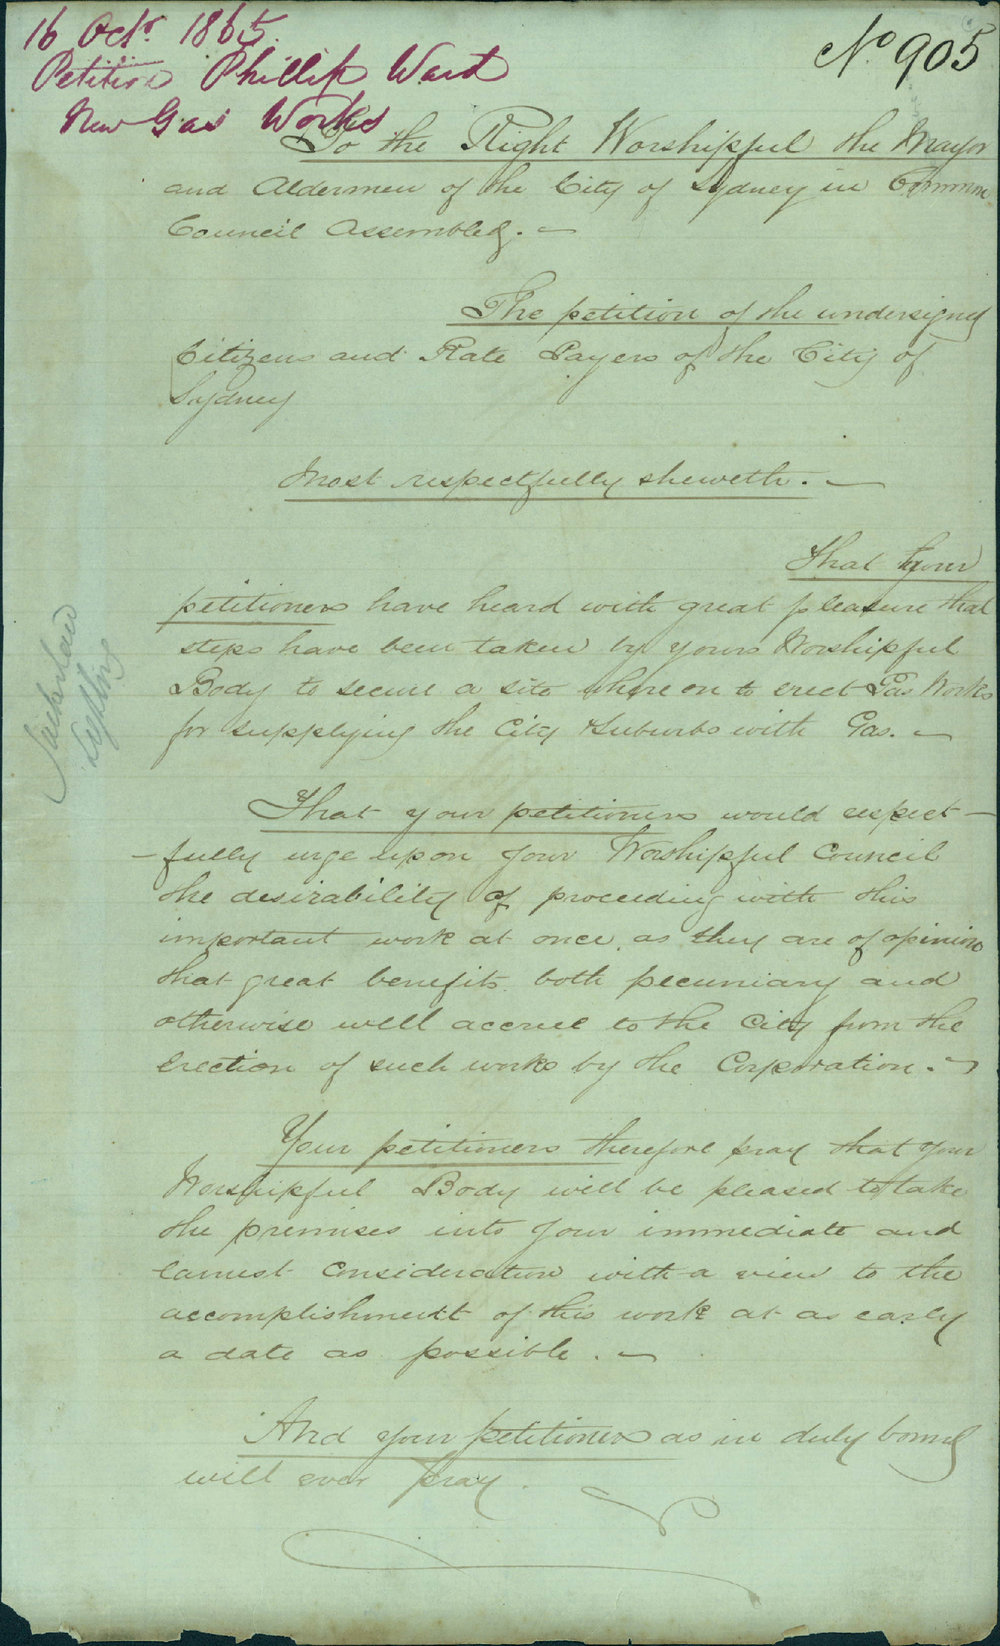 16 Octr. 1865.
Petition Phillip Ward
New Gas Works
No 905
To the Right Worshipful the Mayor
and Aldermen of the City of Sydney in Common
Council Assembled. —
The petition of the undersigned
Citizens and Rate Payers of the City of
Sydney
Most respectfully sheweth. —
That Your
petitioners have heard with great pleasure that
steps have been taken by yours Worshipful
Body to secure a site whereon to erect Gas Works
for supplying the City & Suburbs with Gas. —
That your petitioners would respect-
-fully urge upon your Worshipful Council
the desirability of proceeding with this
important work at once, as they are of opinion
that great benefits both pecuniary and
otherwise will accrue to the City from the
Erection of such works by the Corporation. —
Your petitioners therefore pray that your
Worshipful Body will be pleased to take
the premises into your immediate and
earnest consideration with a view to the
accomplishment of this work at as early
a date as possible. —
And your petitioners as in duly bound
will ever pray.